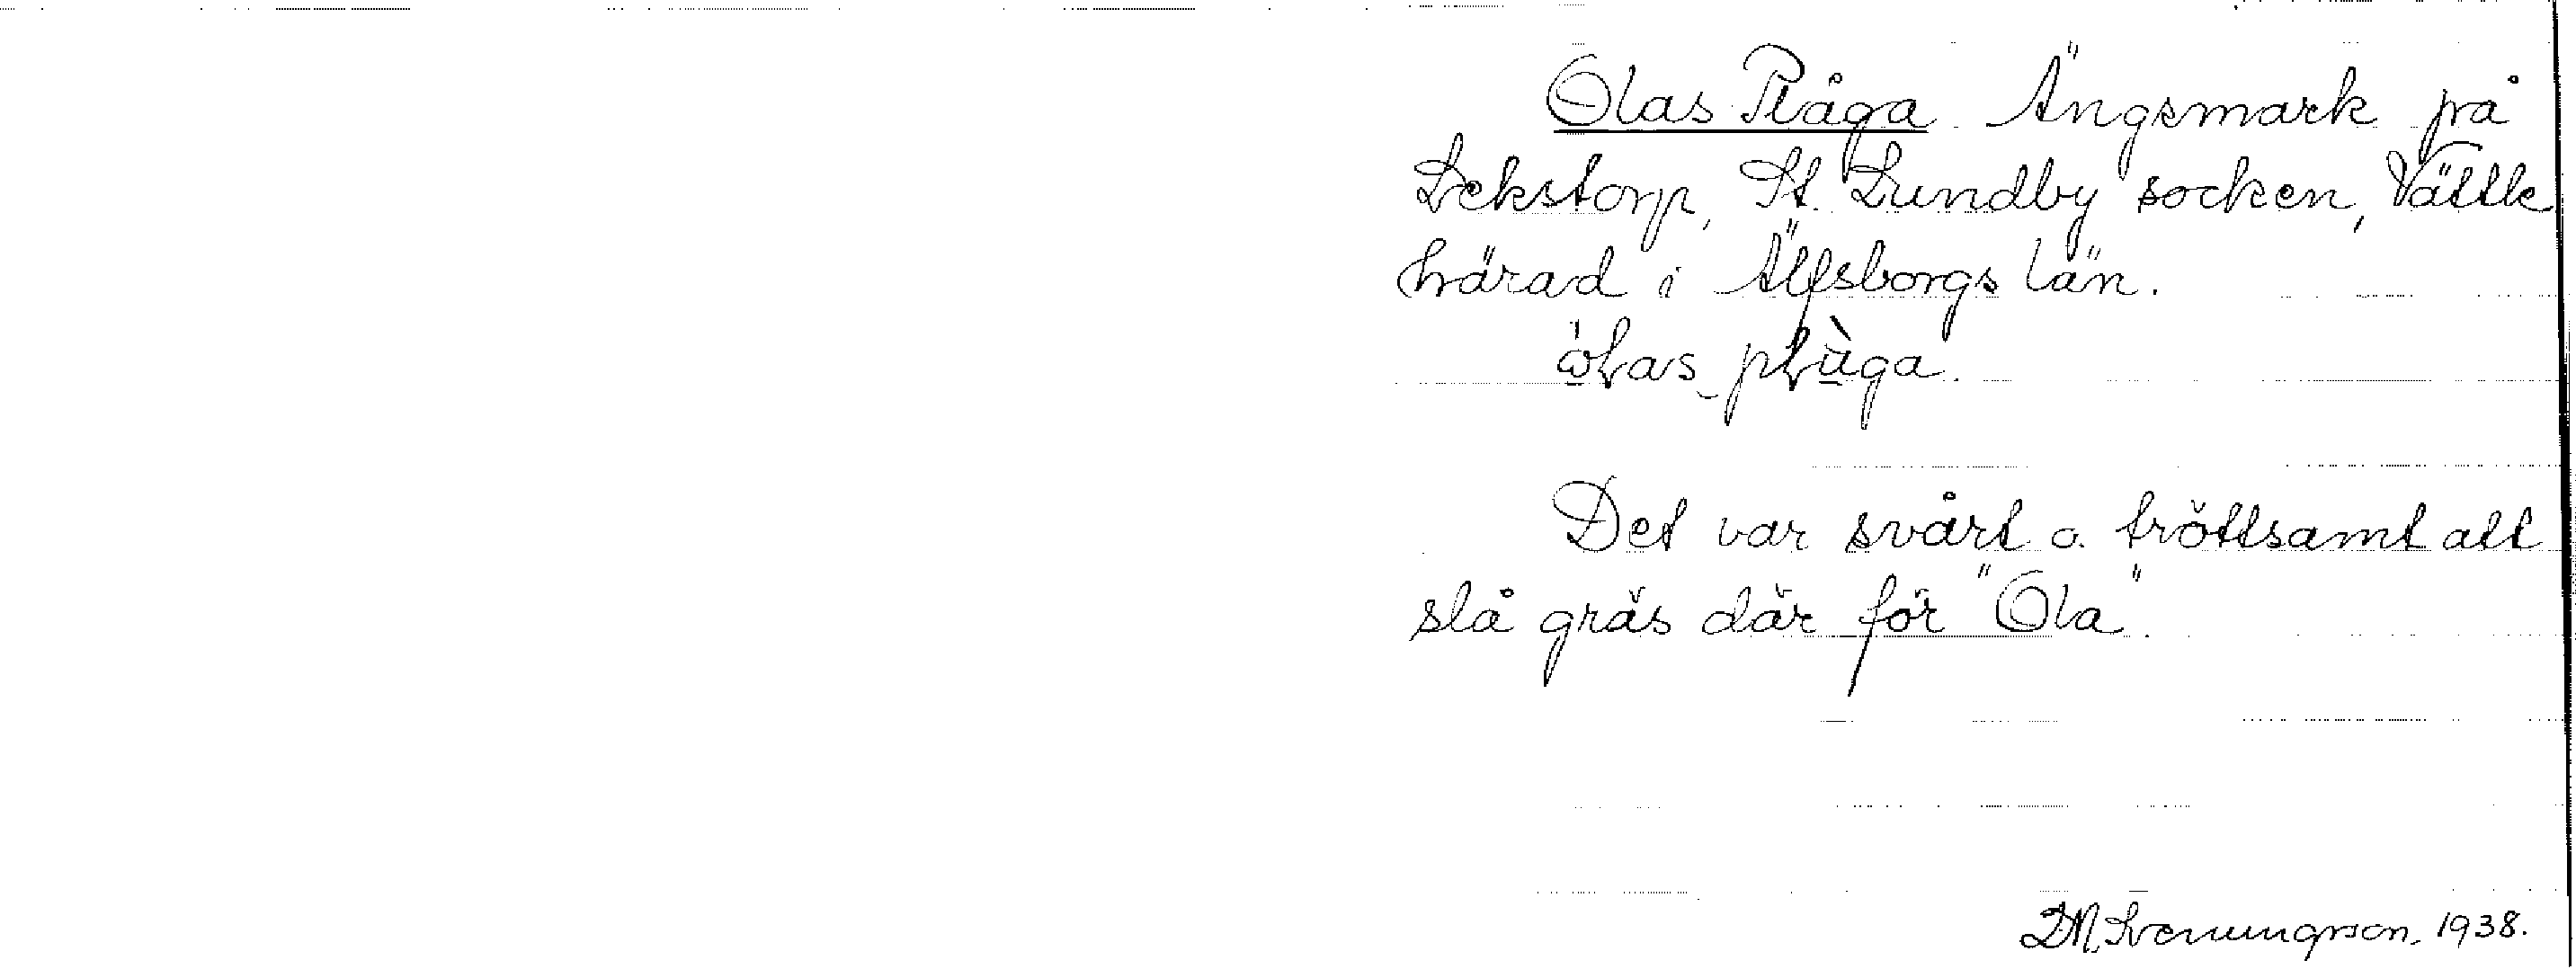 Olas Plåga. Ängsmark på
Lekstorp, St. Lundby socken, Vättle
härad i Älfsborgs län.
Det var svårt o. tröttsamt att
slå gräs där för "Ola".
1938.